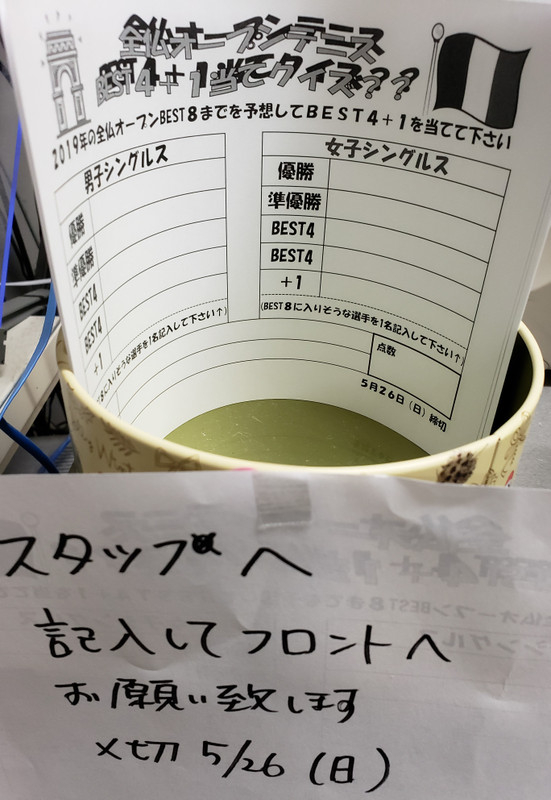 全仏オープンテニス
BEST4+1当てクイズ??
2019年の全仏オープンBEST8までを予想してBEST4+1を当てて下さい
男子シングルス
優勝
準優勝
BEST4
BEST4
+1
8に入りそうな選手を1名記入して下さい↑)
女子シングルス
優勝
準優勝
BEST4
BEST4
+1
(BEST8に入りそうな選手を1名記入して下さい↑)
点数
5月26日(日)締切
スタッフへ
記入してフロントへ
お願い致します
〆切 5/26 (日)